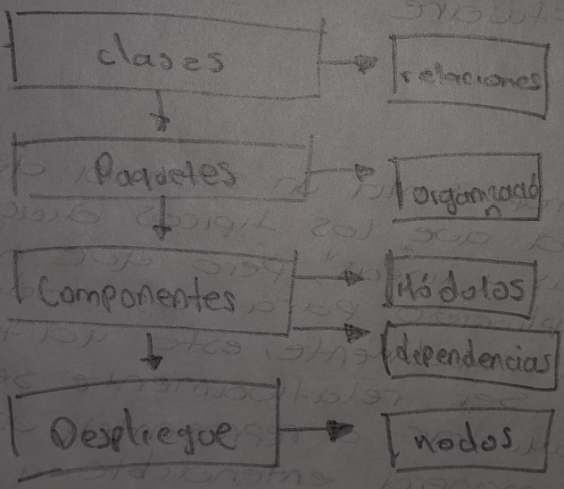 clases
relaciones
Paquetes
organizació
n
Componentes
Módulos
dependencias
Despliegue
nodos